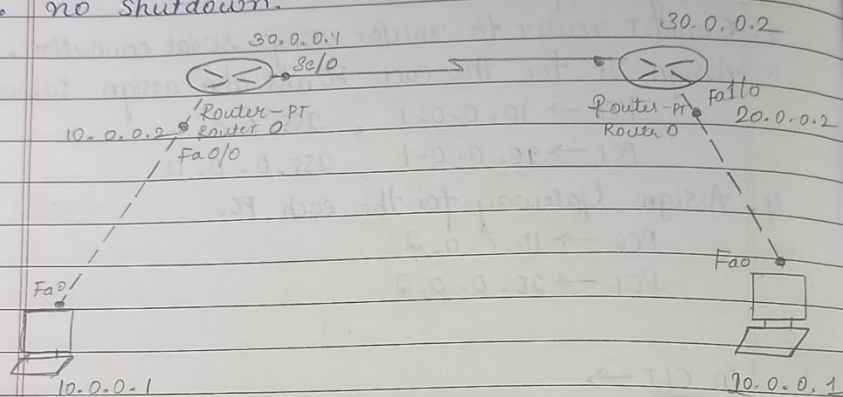 no shutdown.
30.0.0.1
30.0.0.2
Se/0
Router-PT
Router 0
10.0.0.2
Fa0/0
Router-PT
Router 0
Fa1/0
20.0.0.2
Fa0
10.0.0.1
Fa0
20.0.0.1